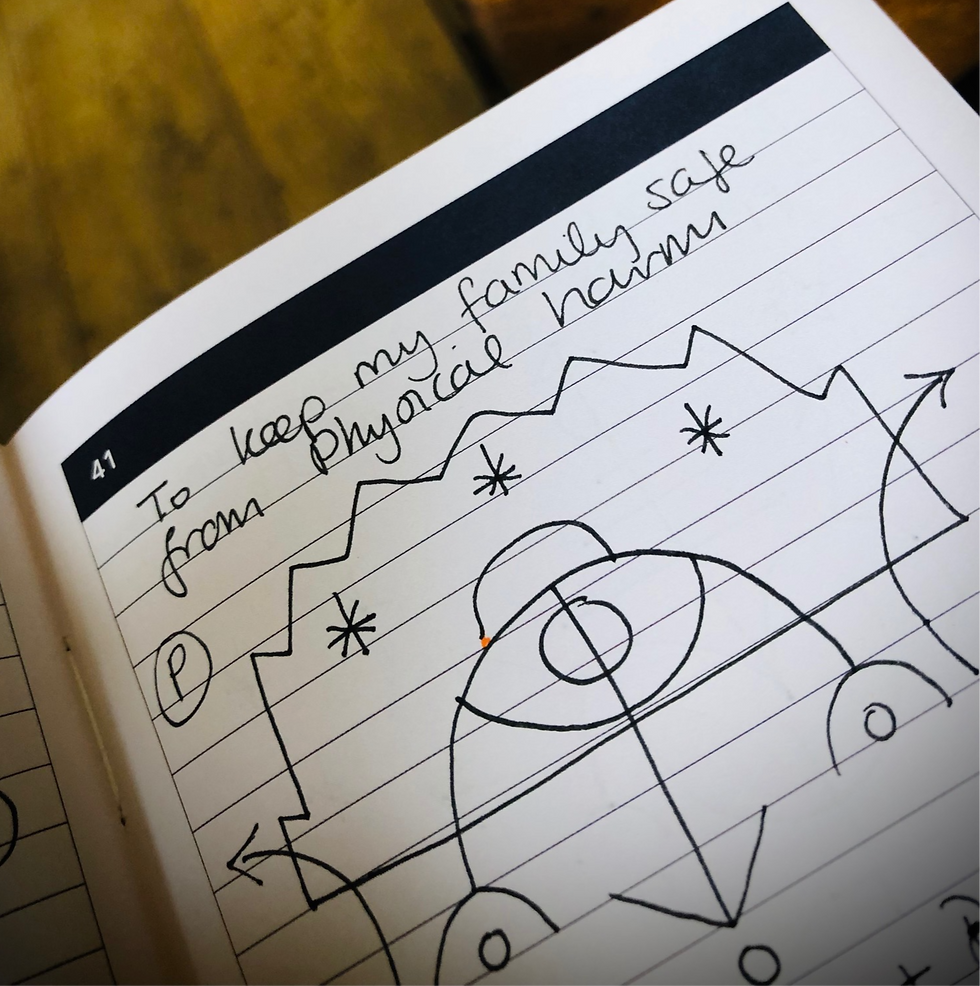 41
To keep my family safe
from physical harm
P